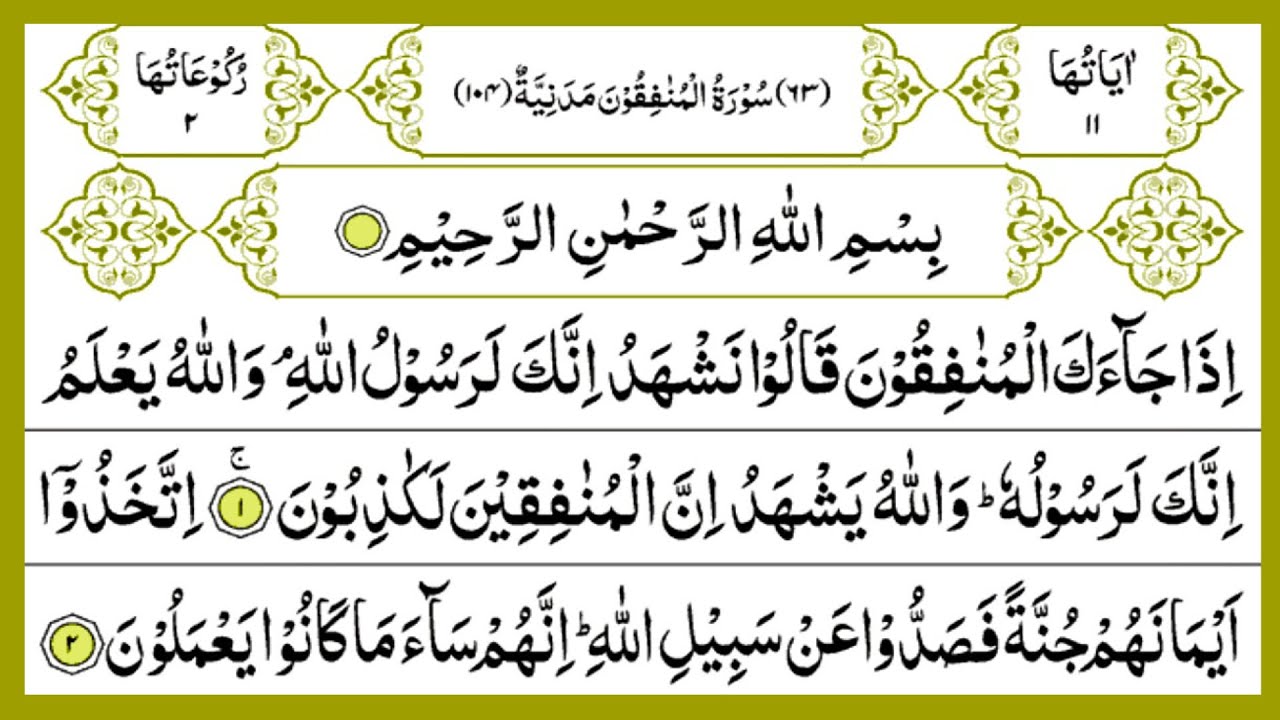 اٰيَاتُهَا
١١
(٦٣) سُوْرَةُ الْمُنٰفِقُوْنَ مَدَنِيَّةٌ (١٠٤)
رُكُوْعَاتُهَا
٢
بِسْمِ اللّٰهِ الرَّحْمٰنِ الرَّحِيْمِ
اِذَا جَآءَكَ الْمُنٰفِقُوْنَ قَالُوْا نَشْهَدُ اِنَّكَ لَرَسُوْلُ اللّٰهِ ۘ وَاللّٰهُ يَعْلَمُ
اِنَّكَ لَرَسُوْلُهٗ ؕ وَاللّٰهُ يَشْهَدُ اِنَّ الْمُنٰفِقِيْنَ لَكٰذِبُوْنَ ۚ ١ اِتَّخَذُوْۤا
اَيْمَانَهُمْ جُنَّةً فَصَدُّوْا عَنْ سَبِيْلِ اللّٰهِ ؕ اِنَّهُمْ سَآءَ مَا كَانُوْا يَعْمَلُوْنَ ٢